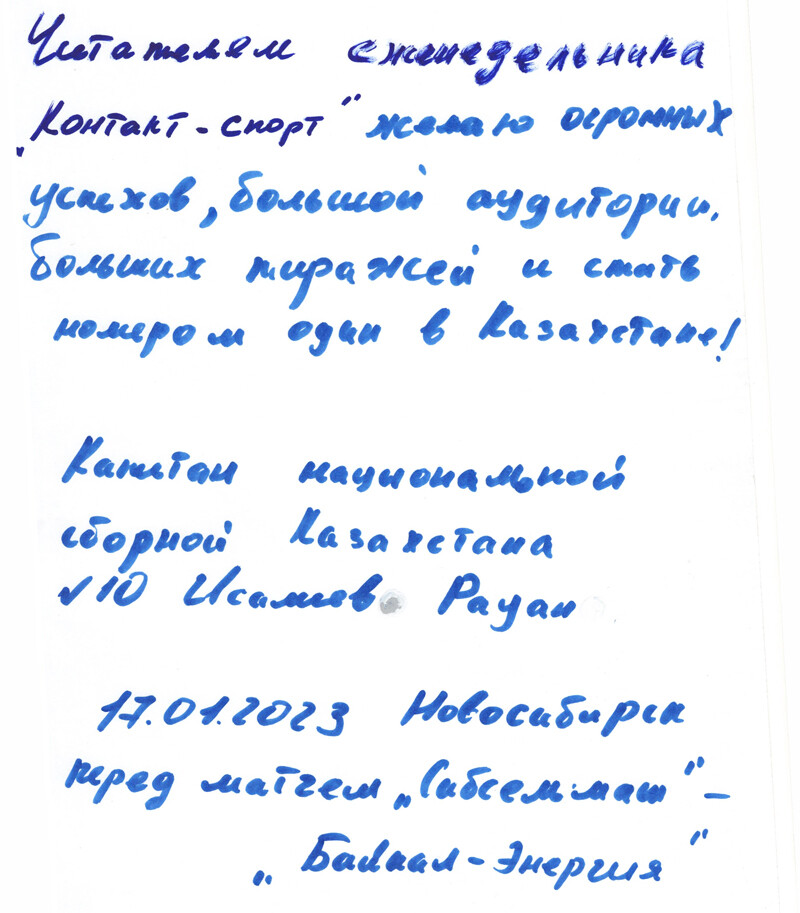 Читателям еженедельника
„Контакт-спорт" желаю огромных
успехов, большой аудитории,
больших тиражей и стать
номером один в Казахстане!
Капитан национальной
сборной Казахстана
№10 Исалиев Рауан
17.01.2023 Новосибирск
перед матчем „Сибсельмаш" –
„Байкал-Энергия"